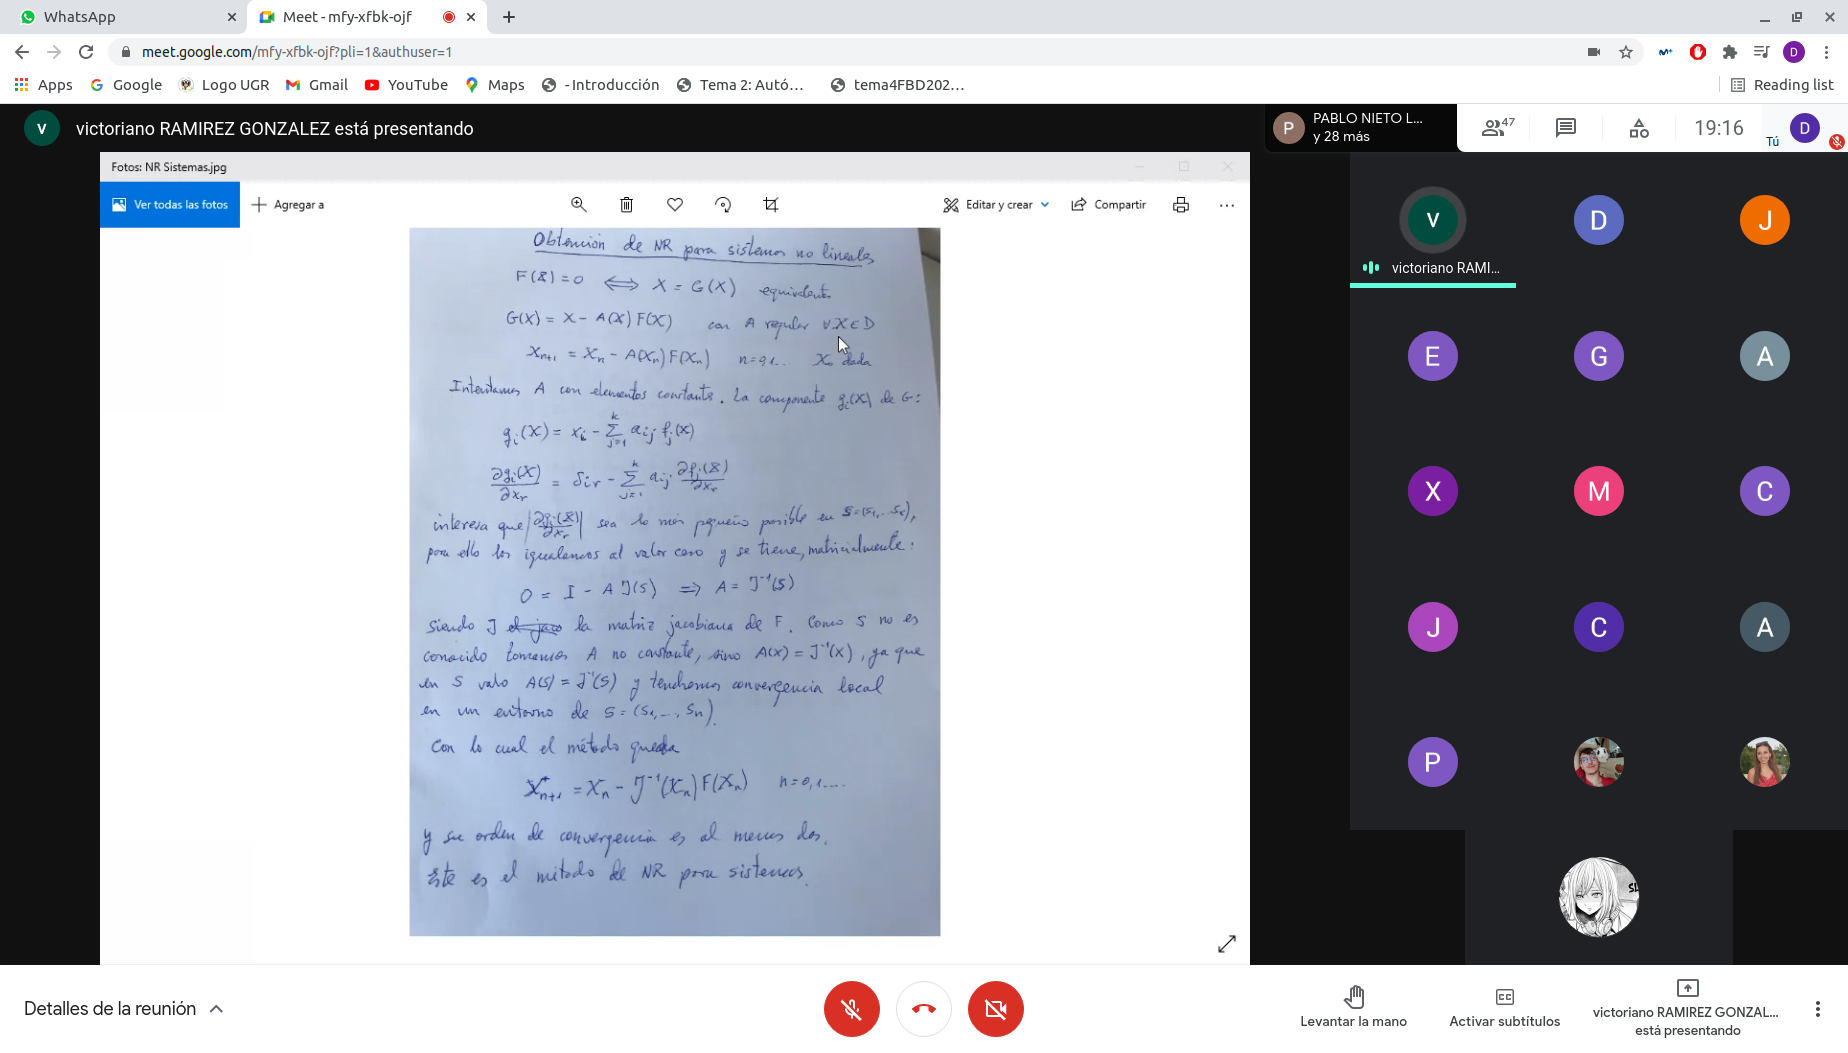 WhatsApp
Meet - mfy-xfbk-ojf
meet.google.com/mfy-xfbk-ojf?pli=1&authuser=1
D
Apps
Google
Logo UGR
Gmail
YouTube
Maps
- Introducción
Tema 2: Autó...
tema4FBD202...
Reading list
V
victoriano RAMIREZ GONZALEZ está presentando
P
PABLO NIETO L...
y 28 más
47
19:16
Tú
D
Fotos: NR Sistemas.jpg
Ver todas las fotos
Agregar a
Editar y crear
Compartir
Obtención de NR para sistemas no lineales
F(X) = 0 ⟺ X = G(X) equivalentes
G(X) = X - A(X) F(X) con A regular ∀ X ∈ D
Xn+1 = Xn - A(Xn) F(Xn) n=0,1... X0 dada
Intentamos A con elementos constante. La componente gi(X) de G:
gi(X) = xi - ∑ j=1 k aij fj(X)
∂gi(X)/∂xr = δir - ∑ j=1 k aij ∂fj(X)/∂xr
interesa que |∂gi(X)/∂xr| sea lo más pequeño posible en
para ello los igualamos al valor cero y se tiene, matricialmente:
0 = I - A J(S) ⟹ A = J⁻¹(S)
siendo J la matriz jacobiana de F. Como S no es
conocido tomamos A no constante, sino A(X) = J⁻¹(X), ya que
en S vale A(S) = J⁻¹(S) y tendremos convergencia local
en un entorno de S = (S1, ..., Sn).
Con lo cual el método queda
Xn+1 = Xn - J⁻¹(Xn) F(Xn) n=0,1....
y su orden de convergencia es al menos dos.
Este es el método de NR para sistemas.
V
D
J
victoriano RAMI...
E
G
A
X
M
C
J
C
A
P
Detalles de la reunión
Levantar la mano
Activar subtítulos
victoriano RAMIREZ GONZAL...
está presentando